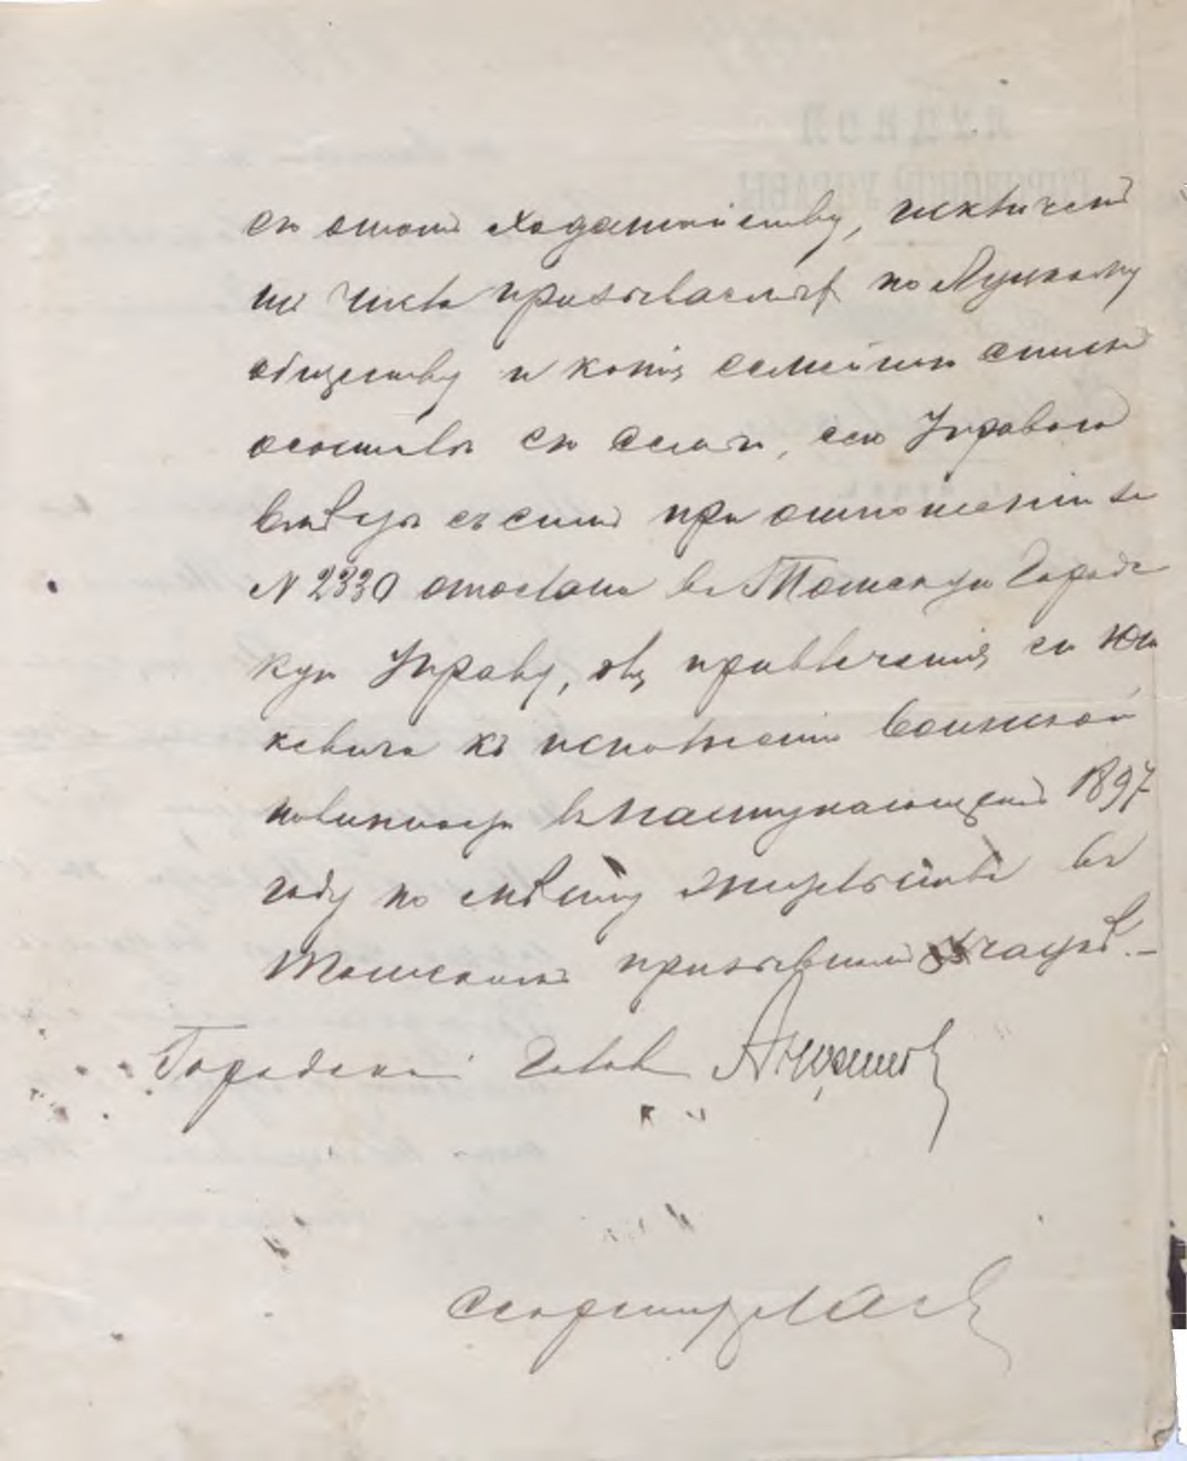 его ходатайству, исключенъ
из числа призываемыхъ по Луцкому
обществу и копія семейнаго списка
о составѣ его семьи, сею Управою
вмѣстѣ съ симъ при отношеніи за
N 2330 отослана въ Томскую Городс
кую Управу, для привлеченія его Юш
кевича къ исполненію воинской
повинности въ наступающемъ 1897
году по мѣсту жительства въ
Томскомъ призывномъ участкѣ. —
Городской Голова
Секретарь